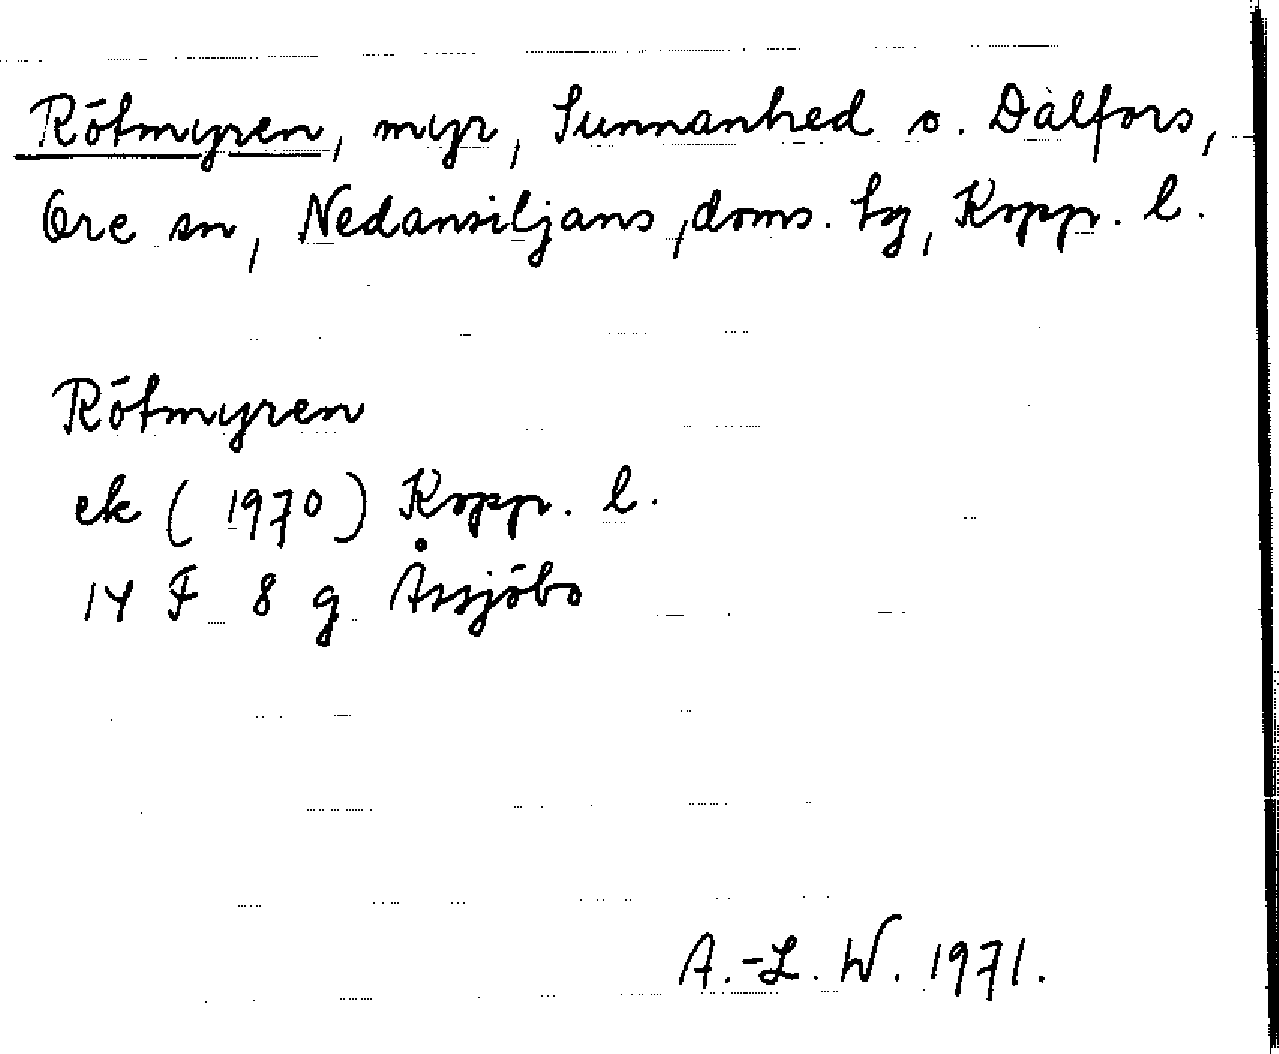 Rötmyren, myr, Sunnanhed o. Dalfors,
Ore sn, Nedansiljans doms. tg, Kopp. l.
Rötmyren
ek (1970) Kopp. l.
14 F 8 g Åssjöbo
A.-L. W. 1971.